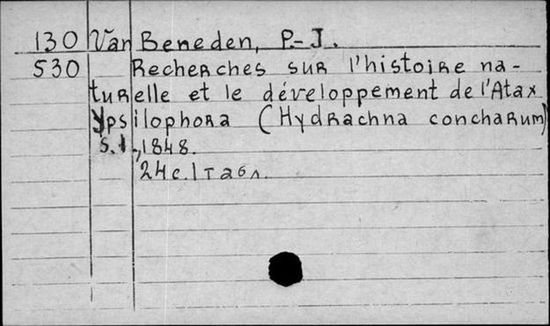 130 Van Beneden, P.-J.
530 Recherches sur l'histoire na-
turelle et le développement de l'Atax
Ypsilophora (Hydrachna concharum)
s.l., 1848.
24 с. 1 табл.